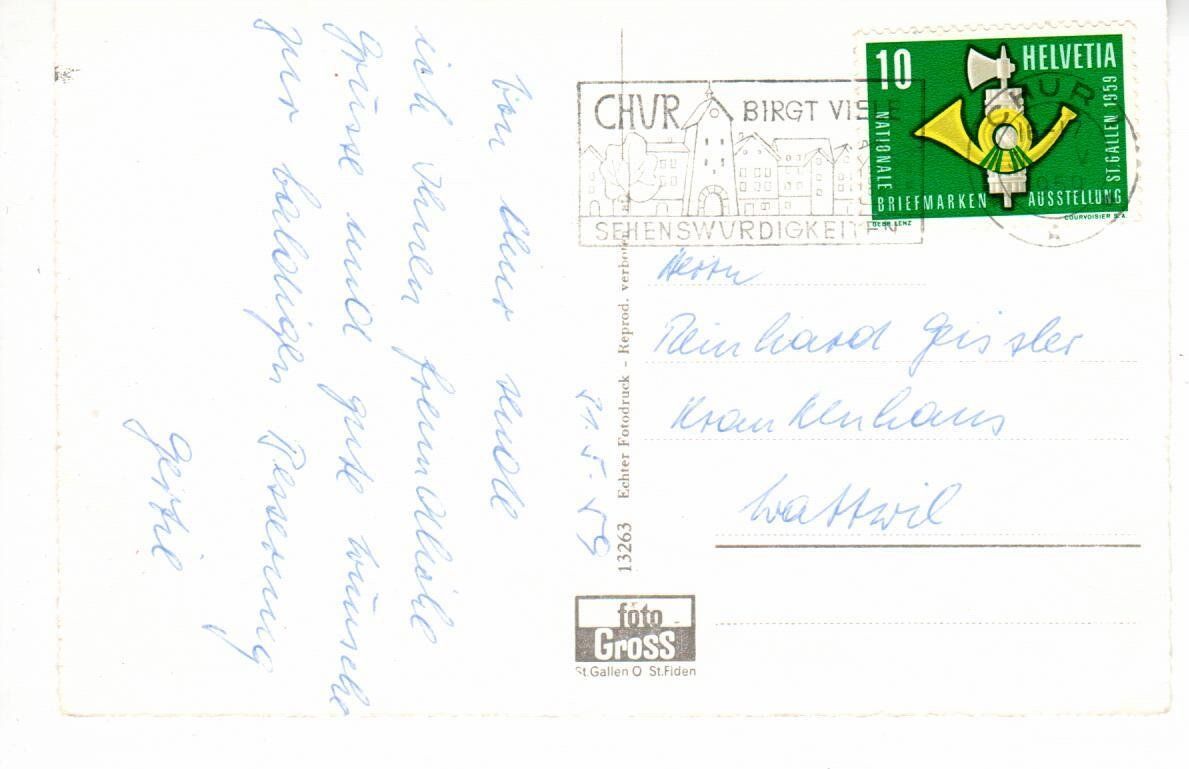 von Chur sende
ich Ihnen freundliche
Grüsse und gute Wünsche
zur baldigen Besserung
21.5.59
13263 Echter Fotodruck - Reprod. verboten
foto
Gross
St.Gallen O St.Fiden
CHUR BIRGT VIELE
SEHENSWÜRDIGKEITEN
CHUR
10 HELVETIA
NATIONALE
BRIEFMARKEN AUSSTELLUNG
ST.GALLEN 1959
GEBR. LENZ COURVOISIER S.A.
Herrn
Reinhard Geissler
Krankenhaus
Wattwil